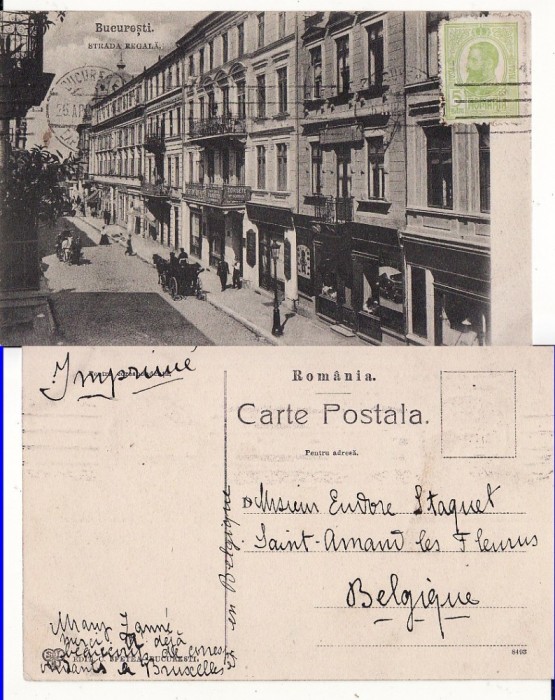 Bucureşti.
STRADA REGALĂ.
BUCUREŞTI
Imprimé
România.
Carte Postala.
Pentru adresă.
Monsieur Eudore Staquet
Saint-Amand lez Fleurus
Belgique
en Belgique
déjà
de corres
à Bruxelles
EDIT. C. SFETEA, BUCUREŞTI.
8493